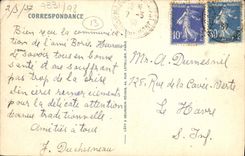 2/3/32 7831/02
CORRESPONDANCE
13
Bien que la communication
de l'ami Boris, Heureux
de savoir tous en bonne
santé d'une souffrant
pas trop de la crise
Sincères remerciements
pour la délicate attention
devenue traditionnelle.
Amitiés à tous
H. Duchesneau
40c
30c
Mr. A. Dumesnil
128, Rue de la Cavée-Verte
Le Havre
S. Inf.